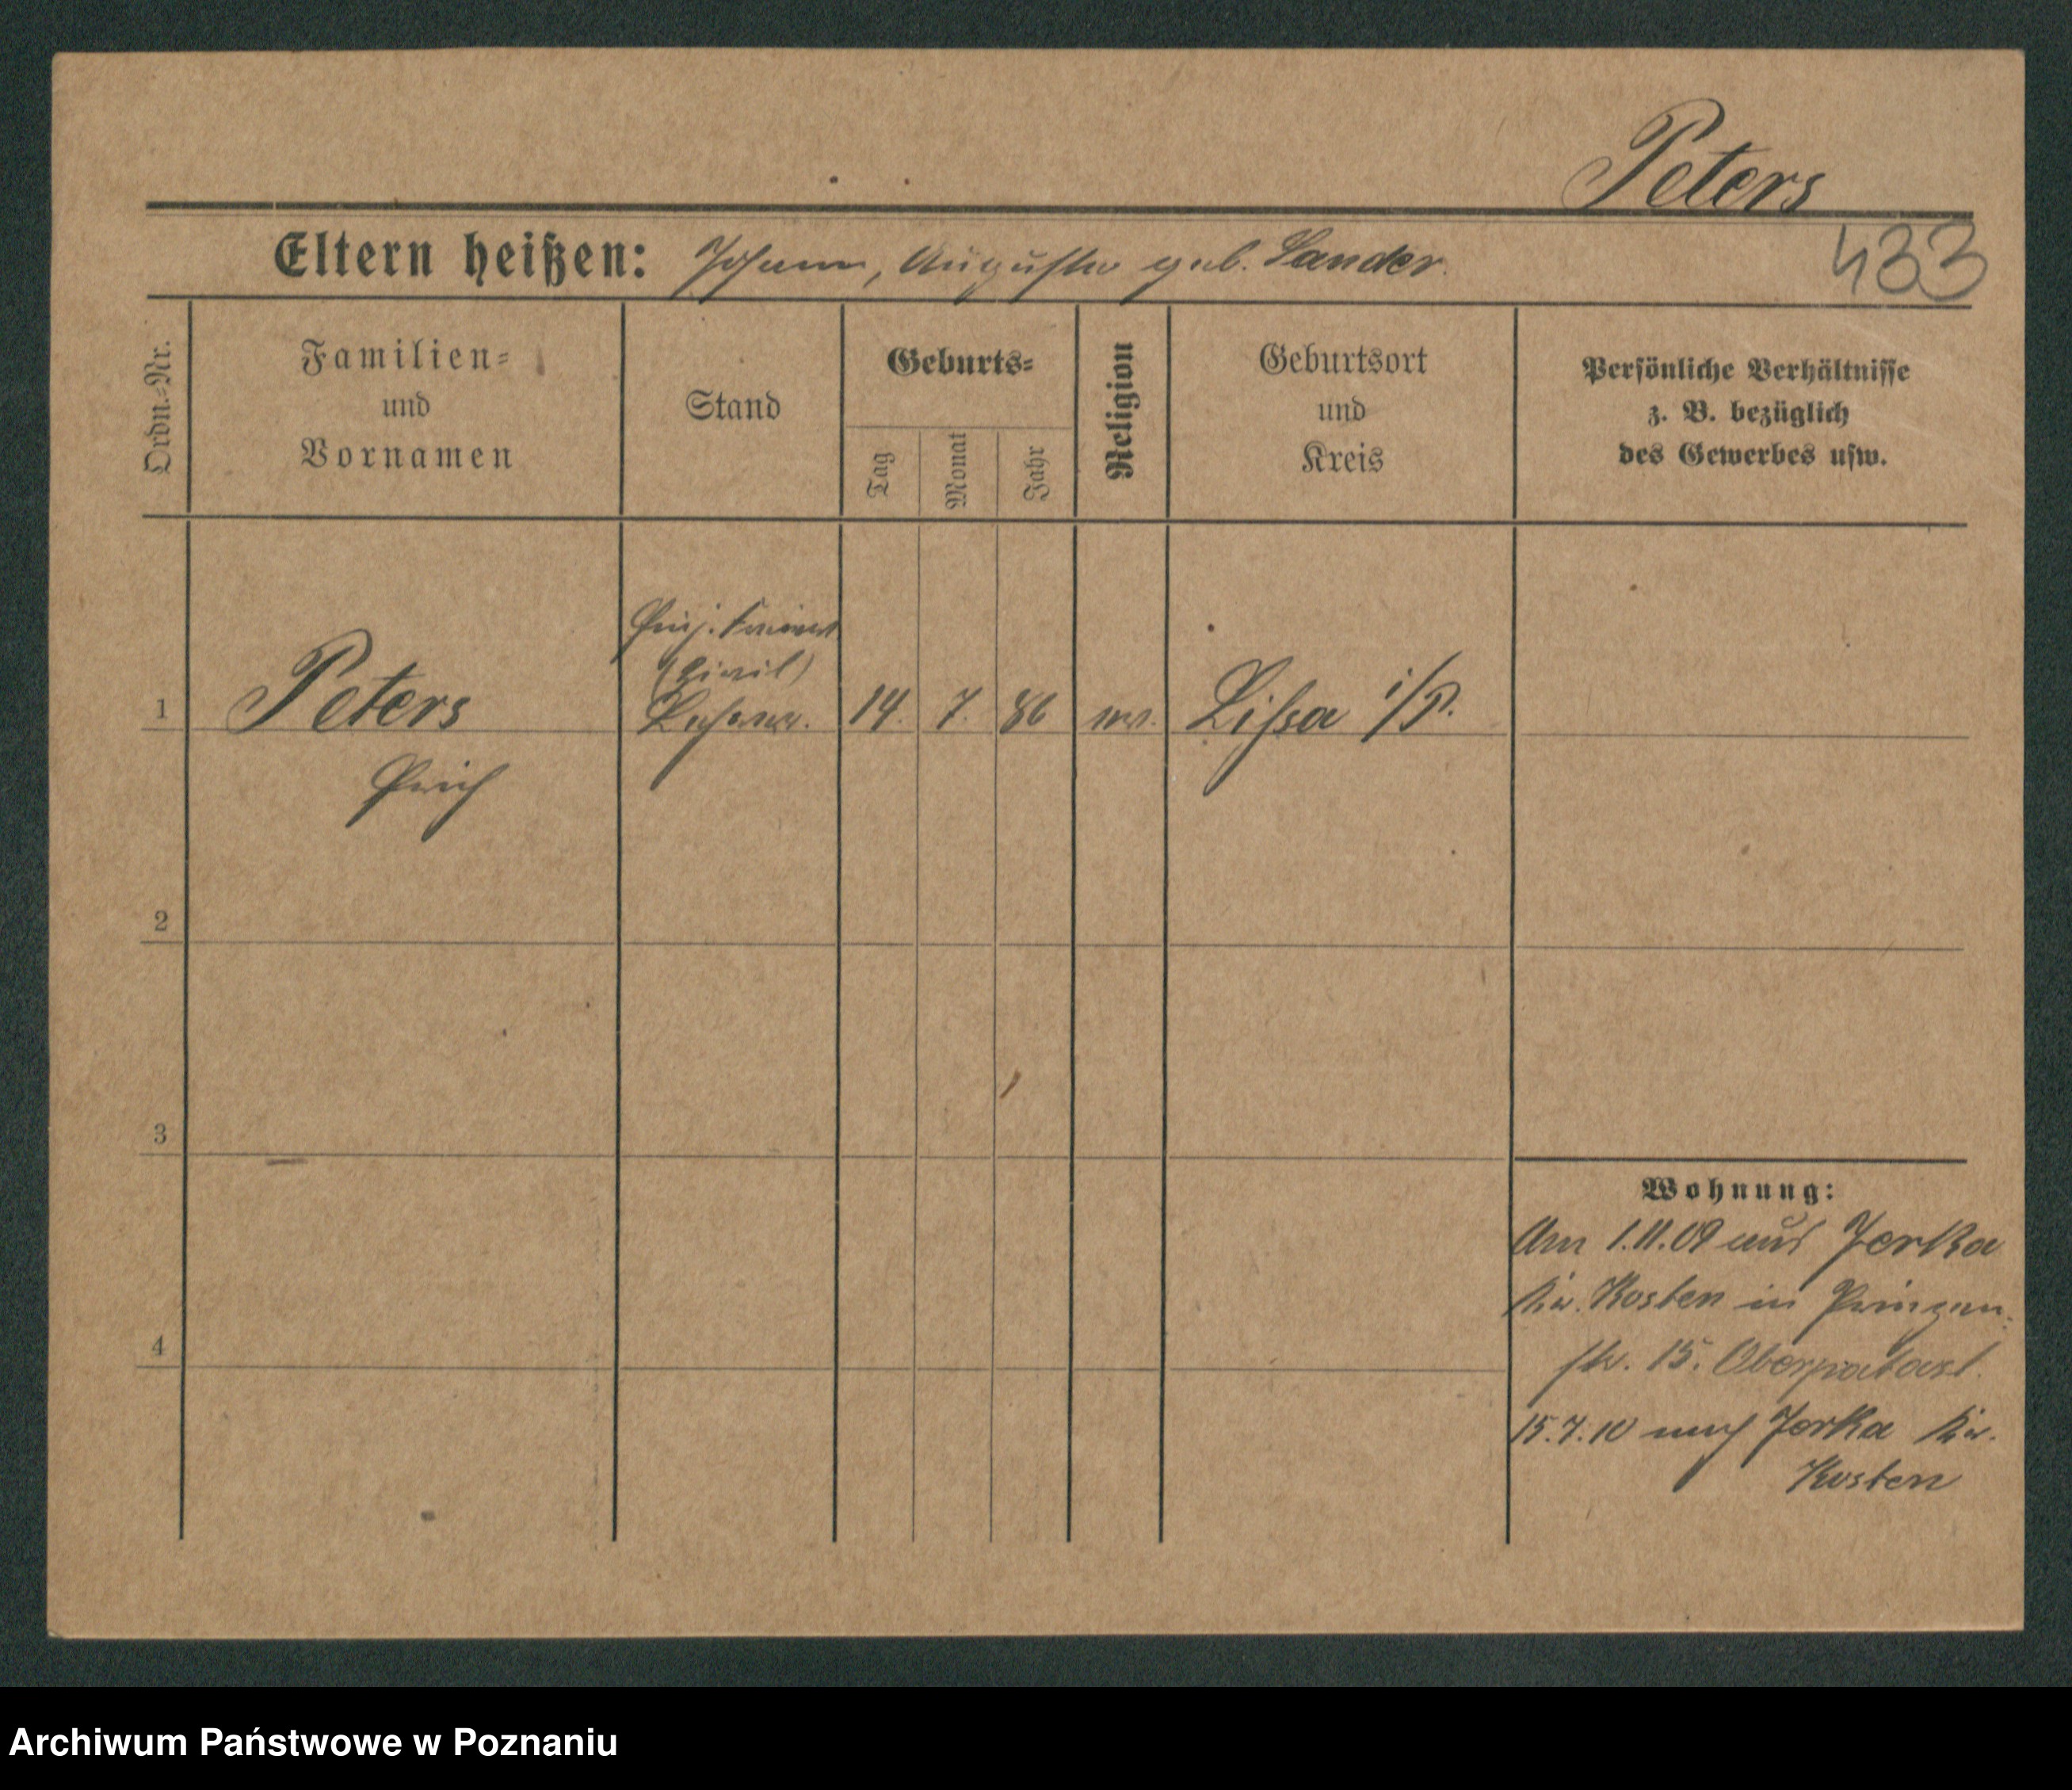 Peters
Eltern heißen: Johann, Auguste geb. Sander.
433
Ordn.-Nr.
Familien-
und
Vornamen
Stand
Geburts-
Tag
Monat
Jahr
Religion
Geburtsort
und
Kreis
Persönliche Verhältnisse
z. B. bezüglich
des Gewerbes usw.
(Zivil)
1 Peters Lehrer. 14. 7. 86 ev. Lissa i/P.
Erich
2
3
4
Wohnung:
Am 1.11.09 aus Jerka
Kr. Kosten in Prinzen-
str. 15.
15.7.10 nach Jerka Kr.
Kosten
Archiwum Państwowe w Poznaniu